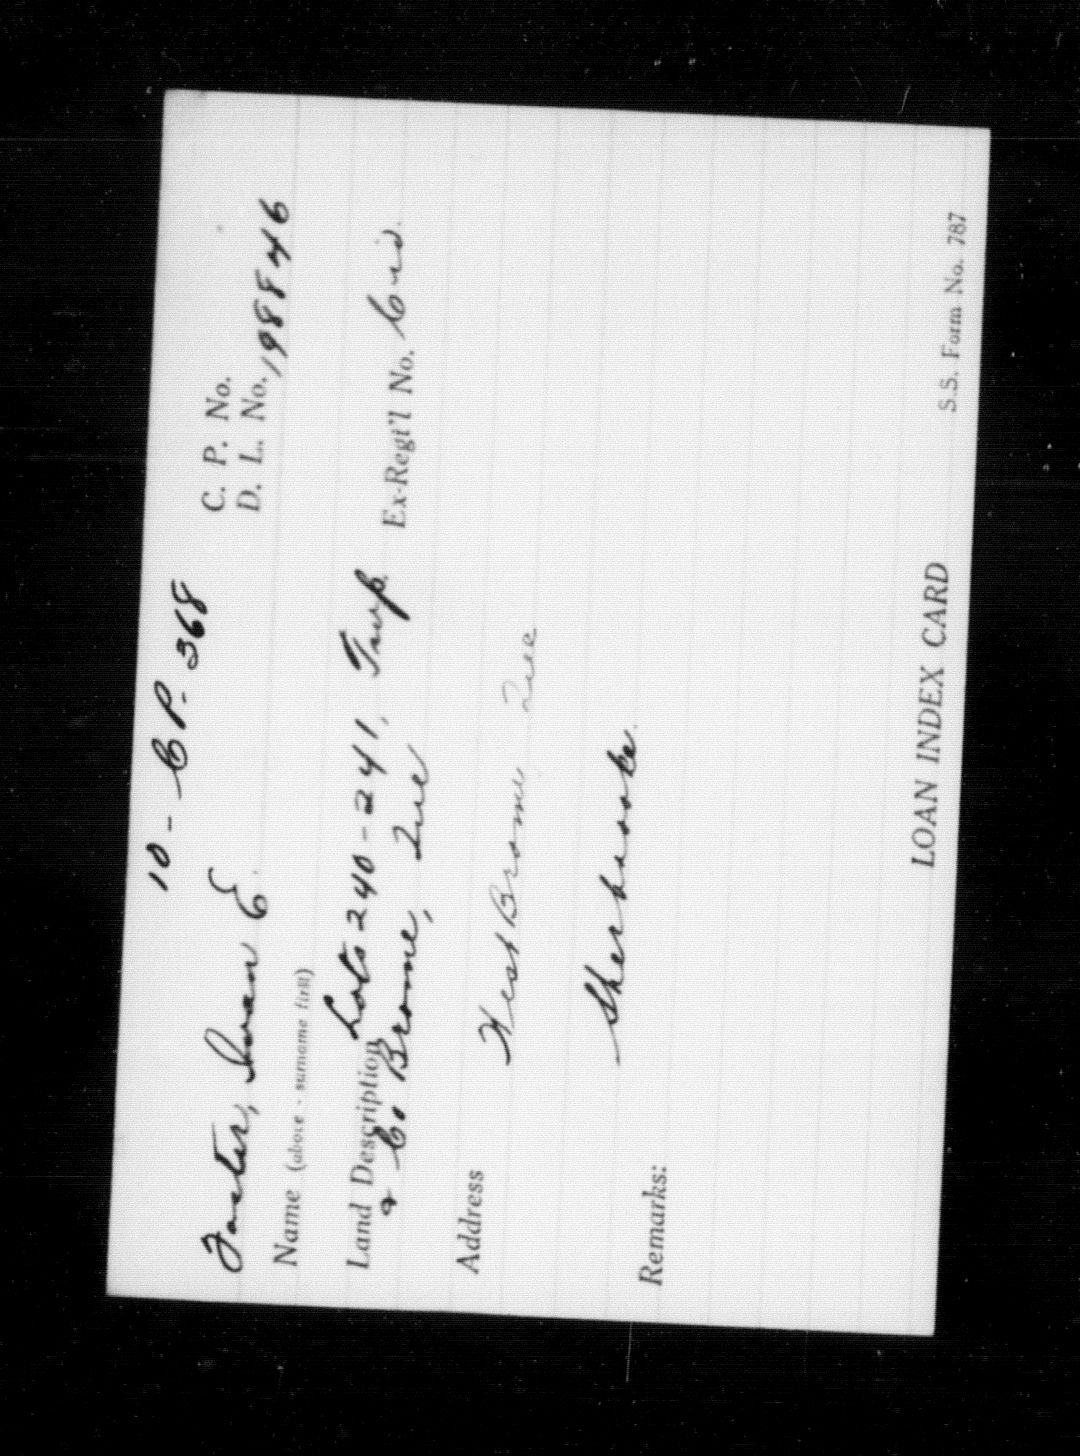 10 - C.P. 368
C. P. No.
Foster, Ivan E. D. L. No. 198846
Name (above - surname first)
Land Description Lots 240-241, Twp.
& Co Brome, Que Ex-Regt'l No. Civ.
Address West Brome Que
Sherbrooke.
Remarks:
LOAN INDEX CARD S.S. Form No. 787